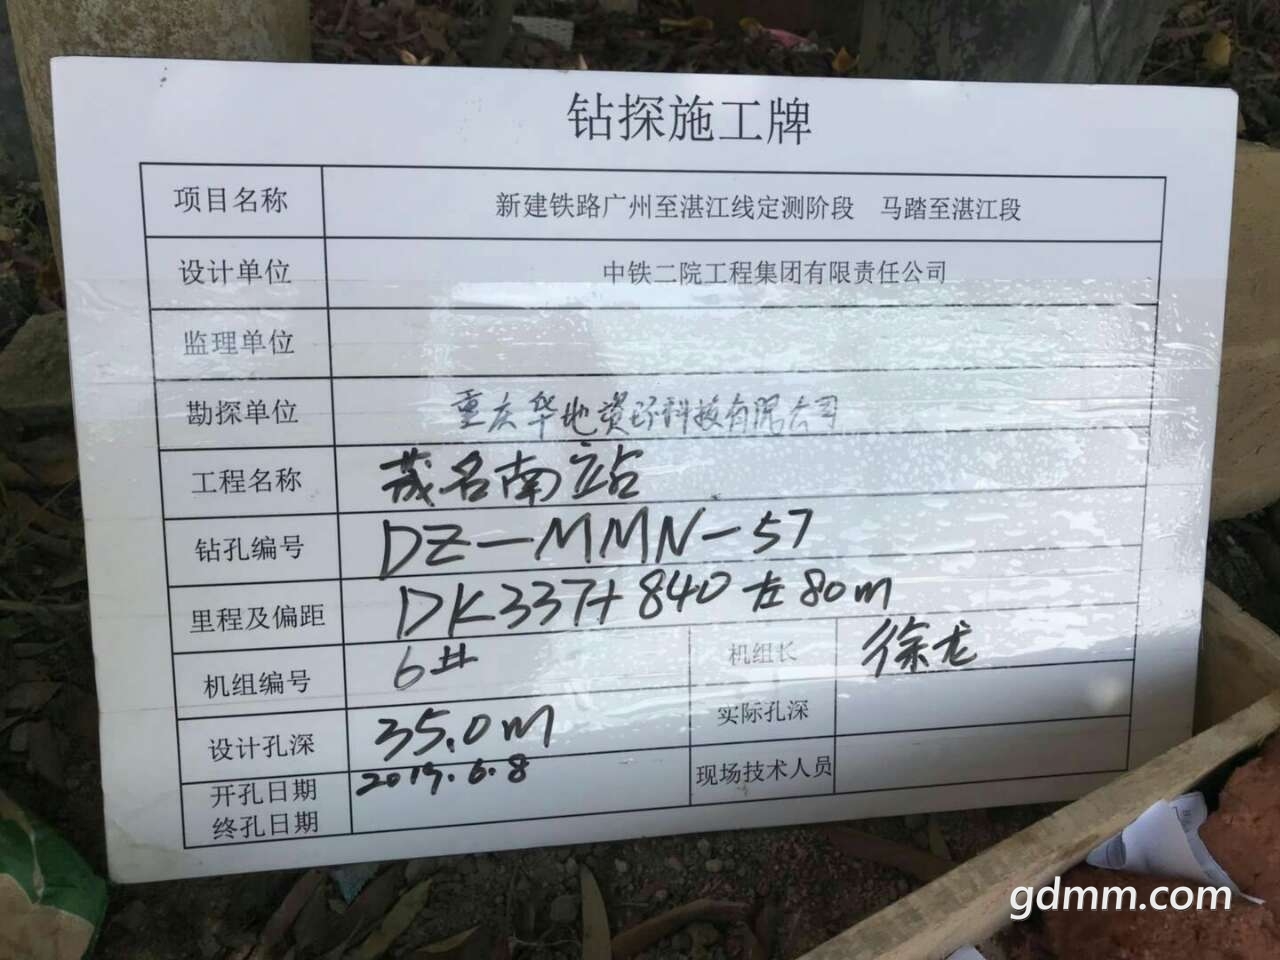 钻探施工牌
项目名称 新建铁路广州至湛江线定测阶段 马踏至湛江段
设计单位 中铁二院工程集团有限责任公司
监理单位
勘探单位 重庆华地资环科技有限公司
工程名称 茂名南站
钻孔编号 DZ-MMN-57
里程及偏距 DK337+840左80m
机组编号 6# 机组长 徐龙
设计孔深 35.0m 实际孔深
开孔日期 2019.6.8 现场技术人员
终孔日期
gdmm.com